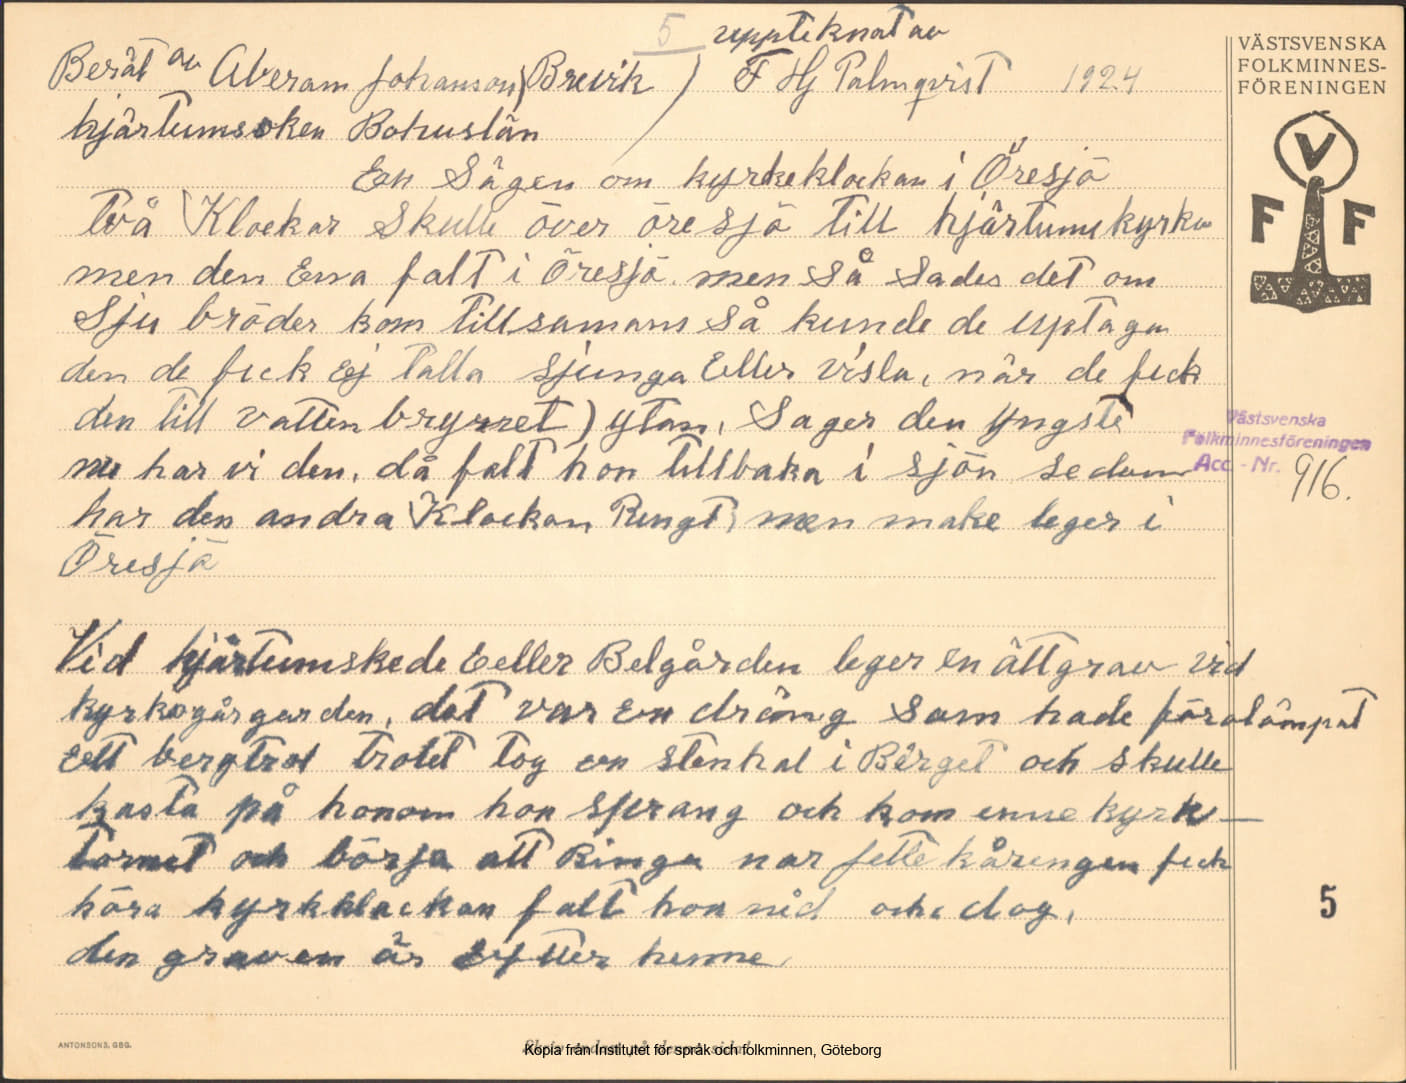 5 uppteknat av
Berät av Averam Johanson (Brevik ) F Hj Palmqvist 1924
hjärtumsoken Bohuslän
En Sägen om kyrkeklockan i Öresjö
två Klockor Skulle över öre sjö till hjärtums kyrka
men den Ena falt i Öresjö. men så Sades det om
Sju bröder kom tillsamans så kunde de uptaga
den de fick Ej talla sjunga Eller visla, när de fick
den till vatten brynnet) ytan, Sager den Yngste
nu har vi den, då falt hon tillbaka i sjön sedan
har den andra Klockan Ringt, men make leger i
Öresjö
Vid hjärtumskede Eeller Belgården leger en ättgrav vid
kyrkogårgarden, dat var En dräng Som hade förolämpat
Ett bergtrol trolet tog en stenhal i Bërget och skulle
kasta på honom hon sprang och kom enne kyrk
tornet och börja att Ringa nar jette kåringen fick
höra kyrkklackan falt hon nid och dog,
den graven är Eftter henne
VÄSTSVENSKA
FOLKMINNES-
FÖRENINGEN
V
F F
Västsvenska
Folkminnesföreningen
Acc. - Nr. 916.
5
ANTONSONS, GBG.
Kopia från Institutet för språk och folkminnen, Göteborg